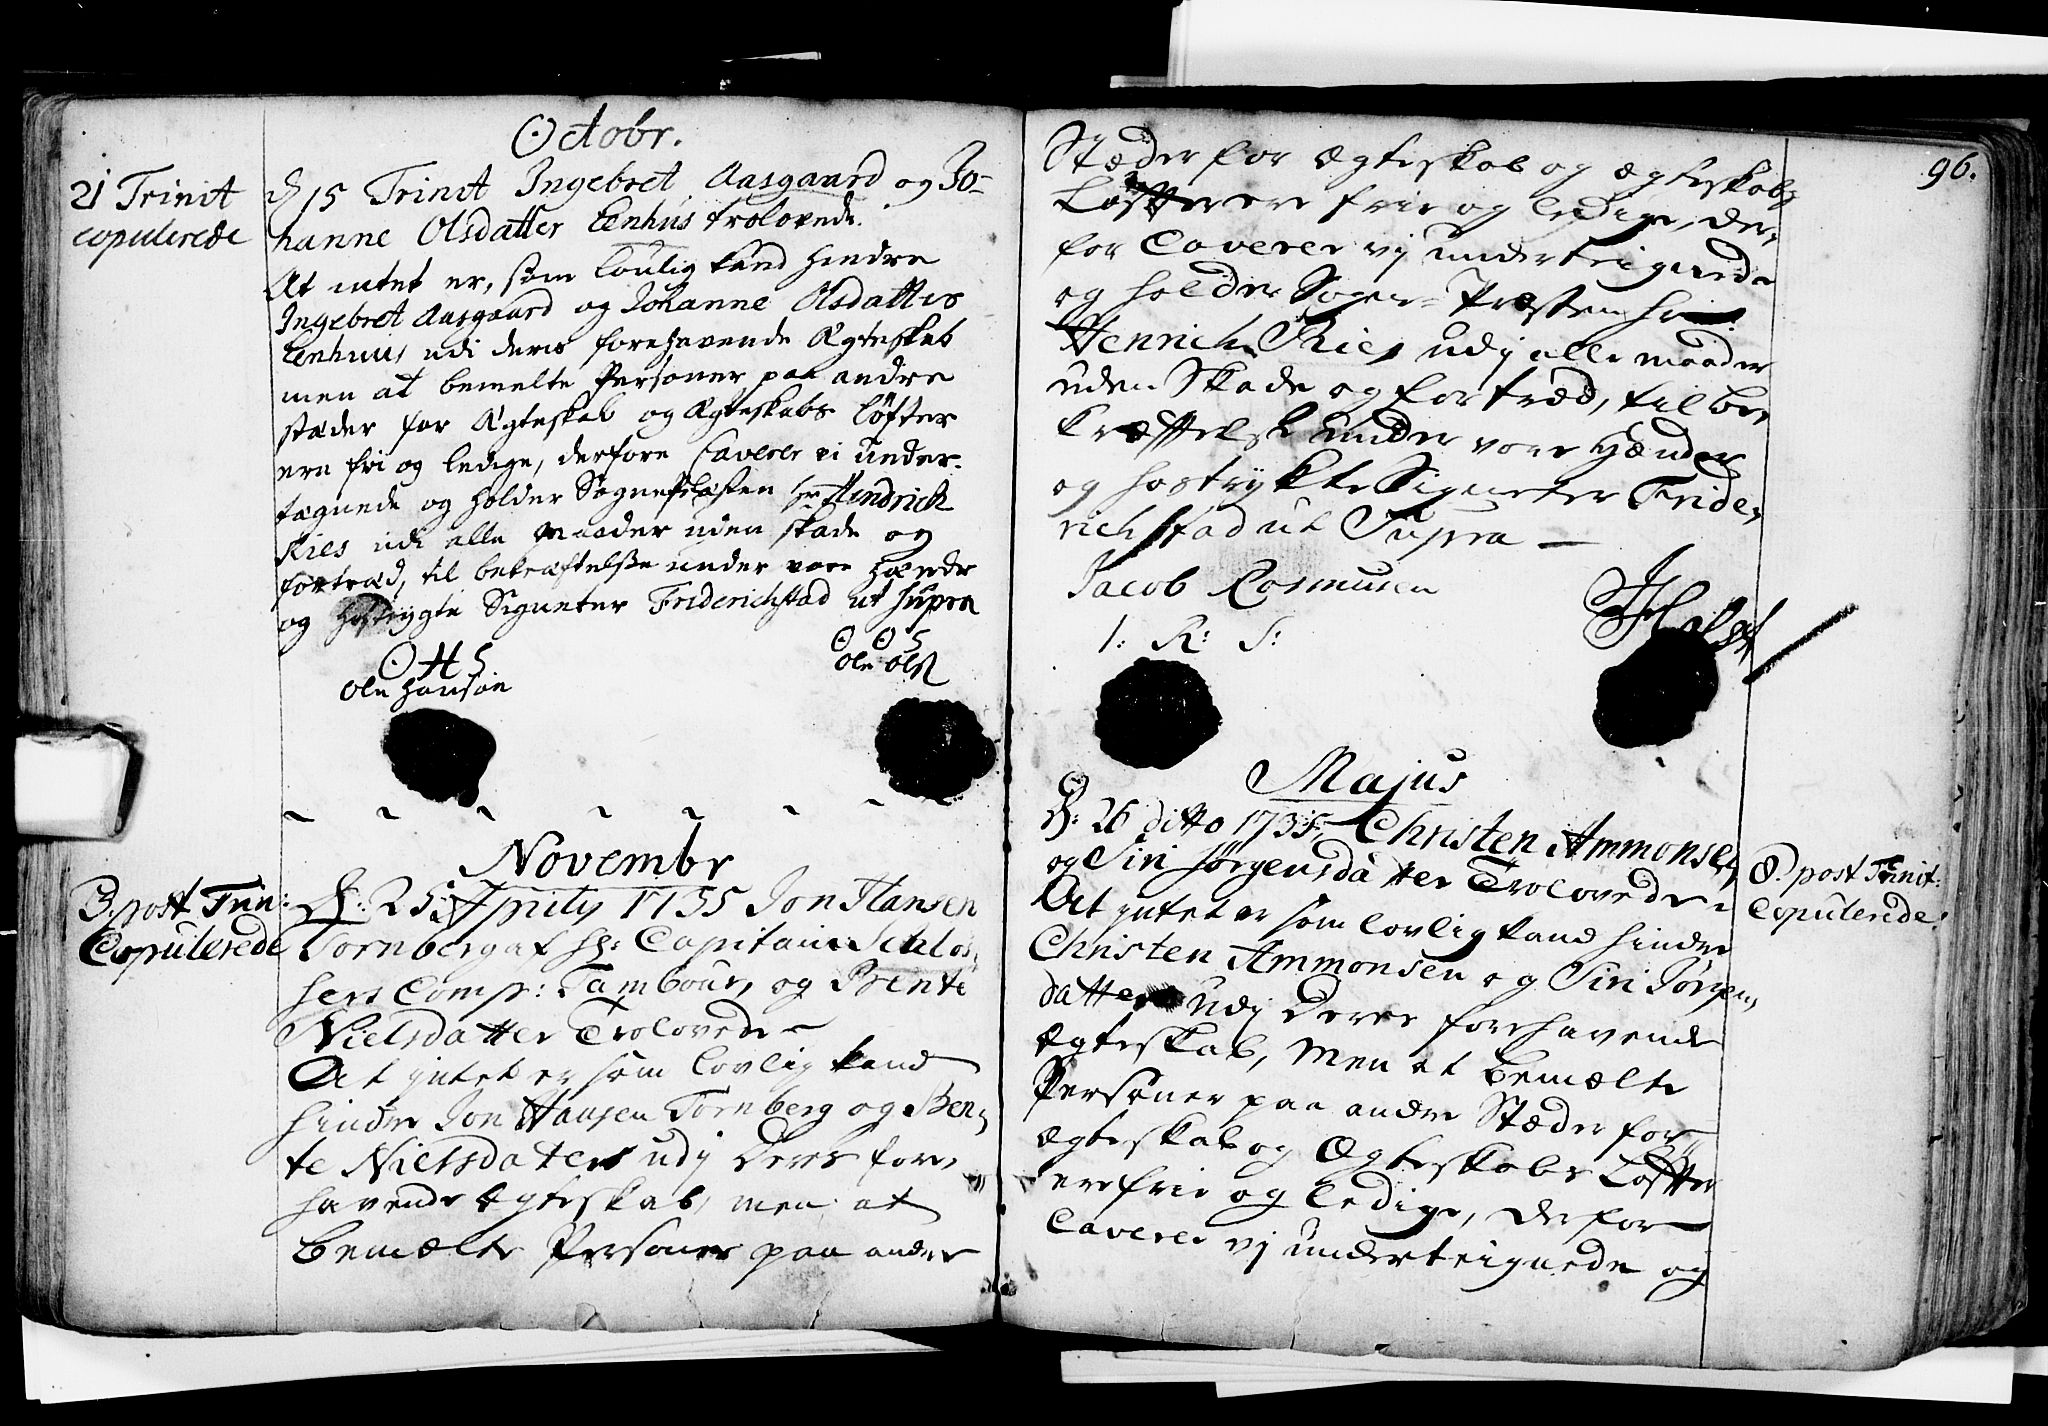 Octobr.
21 Trinit
copulerede
d 15 Trinit Ingebret Aasgaard og Jo-
hanne Olsdatter Eenhus trolovede.
At intet er, som loulig kand hindre
Ingebret Aasgaard og Johanne Olsdatters
Eenhuus udi deris forehavende Ægteskab
men at bemelte Personer paa andre
stæder for Ægteskab og Ægteskabs løfter
ere fri og ledige, derfore Caverer vi under-
tegnede og holder SognePræsten hr Hendrich
Ries udi alle maader uden skade og
fortræd, til bekræftelsse under vore Hænder
og hostrygte Signeter Friderichstad ut supra
OHS
Ole Hansøn
OOS
Ole Ols
Novembr
3. post Trin:
Copulerede
D: 25 Aprily 1735 Jon Hansen
Tornberg af Hr: Capitain
hers Comp: Tambour, og Bente
Nielsdatter Trolovede
At intet er som lovlig kand
hindre Jon Hansen Tornberg og Ben,
te Nielsdatters udj Deres for,
havende Ægteskab, men at
bemælte Personer paa andre
96.
Stæder for Ægteskab og Ægteskabs
Løffter ere frie og ledige, der,
for Caverer vj underteignede
og holder Sogne-Præsten Hr.
Henrich Ries udj alle maader
uden Skade og fortræd, til be,
kræfftelse under vore Hænder
og hostrykte Signeter Fride,
richstad ut Supra
Jacob Rasmusen
I: R: S:
JHolst
Majus
D: 26 ditto 1735, Christen Ammonsen
og Siri Jørgensdatter Trolovede
8. post Trinit:
Copulerede.
At intet er som lovlig kand hindre
Christen Ammonsen og Siri Jørgens,
datter udj Deres forehavende
Ægteskab, Men at bemælte
Personer paa andre Stæder for
Ægteskab og Ægteskabs Løffter
ere frie og ledige, Derfor
Caverer vj underteignede og